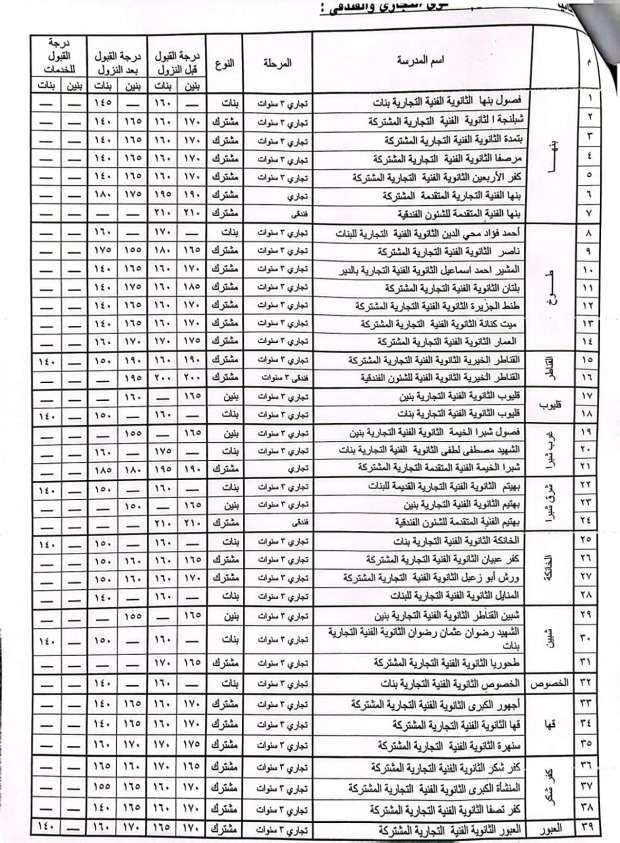 التجاري والفندقي :
م اسم المدرسة المرحلة النوع درجة القبول قبل النزول درجة القبول بعد النزول درجة القبول للخدمات
بنين بنات بنين بنات بنين بنات
بنها
١ فصول بنها الثانوية الفنية التجارية بنات تجاري ٣ سنوات بنات — ١٦٠ — ١٤٥ — —
٢ شبلنجة الثانوية الفنية التجارية المشتركة تجاري ٣ سنوات مشترك ١٧٠ ١٦٠ ١٦٥ ١٤٠ — —
٣ بتمدة الثانوية الفنية التجارية المشتركة تجاري ٣ سنوات مشترك ١٧٠ ١٦٠ ١٦٥ ١٤٠ — —
٤ مرصفا الثانوية الفنية التجارية المشتركة تجاري ٣ سنوات مشترك ١٧٠ ١٦٠ ١٦٥ ١٤٠ — —
٥ كفر الأربعين الثانوية الفنية التجارية المشتركة تجاري ٣ سنوات مشترك ١٧٠ ١٦٠ ١٦٥ ١٤٠ — —
٦ بنها الثانوية التجارية المتقدمة المشتركة تجاري مشترك ١٩٠ ١٩٥ ١٧٥ ١٨٠ — —
٧ بنها الفنية المتقدمة للشئون الفندقية فندقى مشترك ٢١٠ ٢١٠ — — — —
طـوخ
٨ أحمد فؤاد محي الدين الثانوية الفنية التجارية للبنات تجاري ٣ سنوات بنات — ١٧٠ — ١٦٠ — —
٩ ناصر الثانوية الفنية التجارية المشتركة تجاري ٣ سنوات مشترك ١٦٥ ١٨٠ ١٥٥ ١٧٥ — —
١٠ المشير احمد اسماعيل الثانوية الفنية التجارية بالدير تجاري ٣ سنوات مشترك ١٧٠ ١٦٠ ١٦٥ ١٤٠ — —
١١ بلتان الثانوية الفنية التجارية المشتركة تجاري ٣ سنوات مشترك ١٨٥ ١٦٠ ١٧٥ ١٤٠ — —
١٢ طنط الجزيرة الثانوية الفنية التجارية المشتركة تجاري ٣ سنوات مشترك ١٧٠ ١٦٠ ١٦٥ ١٤٠ — —
١٣ ميت كنانة الثانوية الفنية التجارية المشتركة تجاري ٣ سنوات مشترك ١٧٠ ١٦٠ ١٦٥ ١٤٠ — —
١٤ العمار الثانوية الفنية التجارية المشتركة تجاري ٣ سنوات مشترك ١٧٥ ١٧٠ ١٧٠ ١٦٠ — —
القناطر
١٥ القناطر الخيرية الثانوية الفنية التجارية المشتركة تجاري ٣ سنوات مشترك ١٩٠ ١٦٠ ١٩٠ ١٥٠ — ١٤٠
١٦ القناطر الخيرية الثانوية الفنية للشئون الفندقية فندقى ٣ سنوات مشترك ٢٠٠ ٢٠٠ ١٩٥ — — —
قليوب
١٧ قليوب الثانوية الفنية التجارية بنين تجاري ٣ سنوات بنين ١٦٥ — ١٦٠ — — —
١٨ قليوب الثانوية الفنية التجارية بنات تجاري ٣ سنوات بنات — ١٦٠ — ١٥٠ — ١٤٠
غرب شبرا
١٩ فصول شبرا الخيمة الثانوية الفنية التجارية بنين تجاري ٣ سنوات بنين ١٦٥ — ١٥٥ — — —
٢٠ الشهيد مصطفى لطفى الثانوية الفنية التجارية بنات تجاري ٣ سنوات بنات — ١٧٥ — ١٦٠ — —
٢١ شبرا الخيمة الفنية المتقدمة التجارية المشتركة تجاري مشترك ١٩٠ ١٩٥ ١٨٠ ١٨٥ — —
شرق شبرا
٢٢ بهيتم الثانوية الفنية التجارية القديمة للبنات تجاري ٣ سنوات بنات — ١٦٠ — ١٥٠ — ١٤٠
٢٣ بهتيم الثانوية الفنية التجارية بنين تجاري ٣ سنوات بنين ١٦٥ — ١٥٠ — — —
٢٤ بهتيم الفنية المتقدمة للشئون الفندقية فندقى مشترك ٢١٠ ٢١٠ — — — —
الخانكة
٢٥ الخانكة الثانوية الفنية التجارية بنات تجاري ٣ سنوات بنات — ١٦٠ — ١٥٠ — ١٤٠
٢٦ كفر عبيان الثانوية الفنية التجارية المشتركة تجاري ٣ سنوات مشترك ١٦٥ ١٦٠ ١٦٠ ١٥٠ — —
٢٧ ورش أبو زعبل الثانوية الفنية التجارية المشتركة تجاري ٣ سنوات مشترك ١٧٠ ١٦٠ ١٦٠ ١٥٠ — —
٢٨ المنايل الثانوية الفنية التجارية للبنات تجاري ٣ سنوات بنات — ١٦٠ — ١٤٠ — —
شبين
٢٩ شبين القناطر الثانوية الفنية التجارية بنين تجاري ٣ سنوات بنين ١٦٥ — ١٥٥ — — —
٣٠ الشهيد رضوان عثمان رضوان الثانوية الفنية التجارية بنات تجاري ٣ سنوات بنات — ١٦٠ — ١٥٠ — ١٤٠
٣١ طحوريا الثانوية الفنية التجارية المشتركة تجاري ٣ سنوات مشترك ١٦٥ ١٧٠ — — — —
الخصوص
٣٢ الخصوص الثانوية الفنية التجارية بنات تجاري ٣ سنوات بنات — ١٦٠ — ١٤٠ — —
قها
٣٣ أجهور الكبرى الثانوية الفنية التجارية المشتركة تجاري ٣ سنوات مشترك ١٧٠ ١٦٠ ١٦٥ ١٤٠ — —
٣٤ قها الثانوية الفنية التجارية المشتركة تجاري ٣ سنوات مشترك ١٧٠ ١٦٠ ١٦٥ ١٤٠ — —
٣٥ سنهرة الثانوية الفنية التجارية المشتركة تجاري ٣ سنوات مشترك ١٧٥ ١٧٠ ١٧٠ ١٦٠ — —
كفر شكر
٣٦ كفر شكر الثانوية الفنية التجارية المشتركة تجاري ٣ سنوات مشترك ١٧٠ ١٦٥ ١٦٥ ١٦٠ — —
٣٧ المنشأة الكبرى الثانوية الفنية التجارية المشتركة تجاري ٣ سنوات مشترك ١٧٠ ١٦٠ ١٦٥ ١٥٥ — —
٣٨ كفر تصفا الثانوية الفنية التجارية المشتركة تجاري ٣ سنوات مشترك ١٧٠ ١٦٠ ١٦٥ ١٤٠ — —
العبور
٣٩ العبور الثانوية الفنية التجارية المشتركة تجاري ٣ سنوات مشترك ١٧٠ ١٦٥ ١٧٠ ١٦٠ — ١٤٠